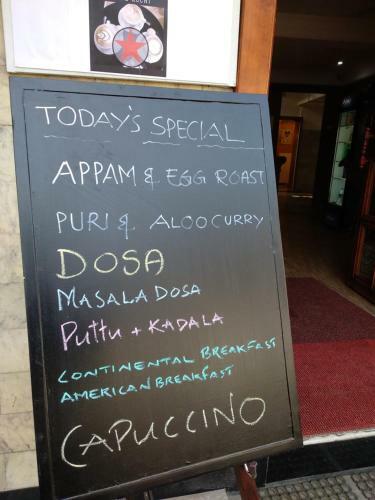 TODAY'S SPECIAL
APPAM & EGG ROAST
PURI & ALOOCURRY
DOSA
MASALA DOSA
PUTTU + KADALA
CONTINENTAL BREAKFAST
AMERICAN BREAKFAST
CAPUCCINO